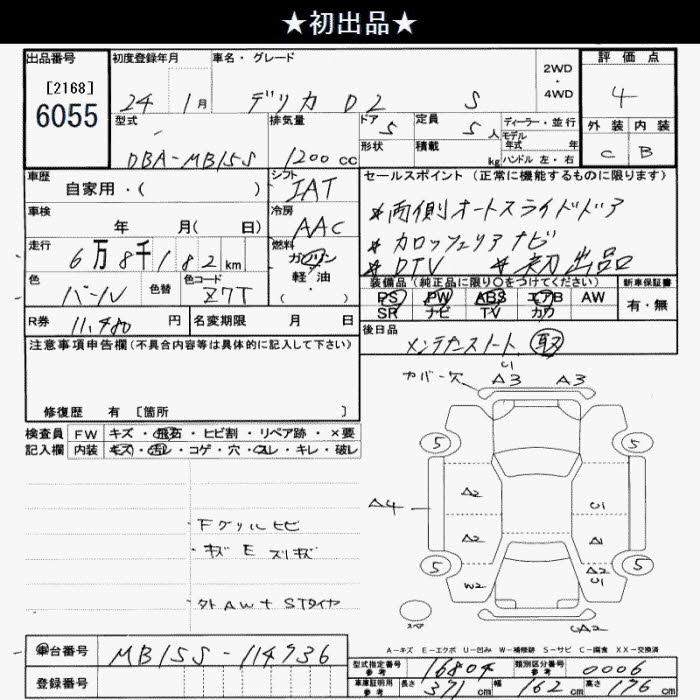 ★初出品★
出品番号 初度登録年月 車名・グレード 2WD・4WD 評価点
[2168]
6055
24 1月 デリカ D2 S 4
型式 排気量 ドア 5 定員 5人 ディーラー・並行 モデル年式 年 外装 内装
DBA-MB15S 1200cc 形状 積載 kg ハンドル 左・右 C B
車歴 シフト セールスポイント (正常に機能するものに限ります)
自家用・( ) IAT
*両側オートスライドドア
車検 冷房
年 月( 日) AAC
*カロッツェリアナビ
走行 6万8千182km 燃料 ガソリン
*DTV *初出品
軽・油
・( )
色 色替 色コード 装備品(純正品に限り○をつけてください) 新車保証書
パール Z7T PS PW ABS エアB AW 有・無
SR ナビ TV カワ
R券 11,480円 名変期限 月 日 後日品
メンテナンスノート, 取
注意事項申告欄(不具合内容等は具体的に記入して下さい)
修復歴 有 [箇所 ]
カバー欠 U1 A3 A3
検査員 FW キズ・飛石・ヒビ割・リペア跡・×要
記入欄 内装 キズ・汚レ・コゲ・穴・スレ・キレ・破レ
5 5
A2 U1
A4
A2 A1
5 A2 5
W2 U1
Fグリルヒビ
キズ E スリキズ
外AW+STタイヤ
スペア
A2
A-キズ E-エクボ U-凹み W-補修跡 S-サビ C-腐食 XX-交換済
車台番号 MB15S-114936
型式指定番号 参考 16804 類別区分番号 参考 0006
登録番号
車庫証明用 参考 長さ 371cm 幅 162cm 高さ 176cm